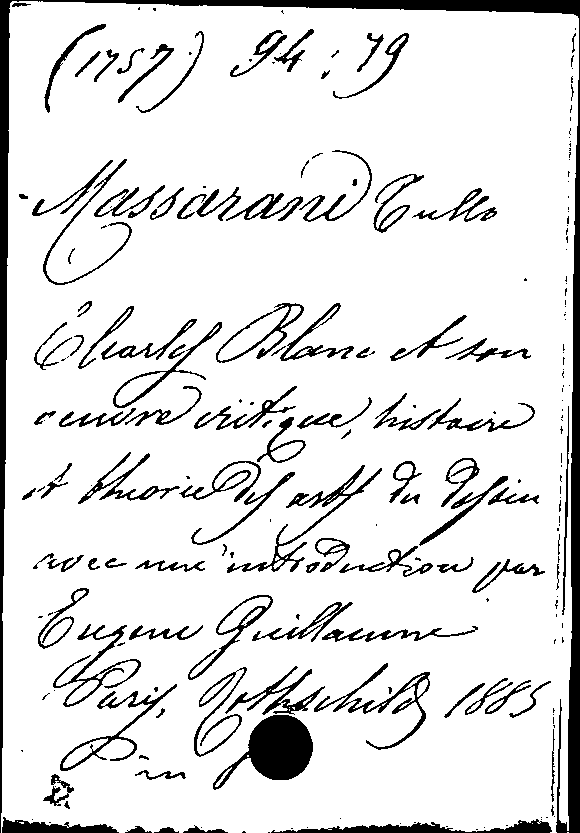 (1757) 94:79
Massarani Tullo
Charles Blanc et son
oeuvre critique, histoire
et théorie des arts du dessin
avec une introduction par
Eugene Guillaume
Paris, Rothschild 1885
in